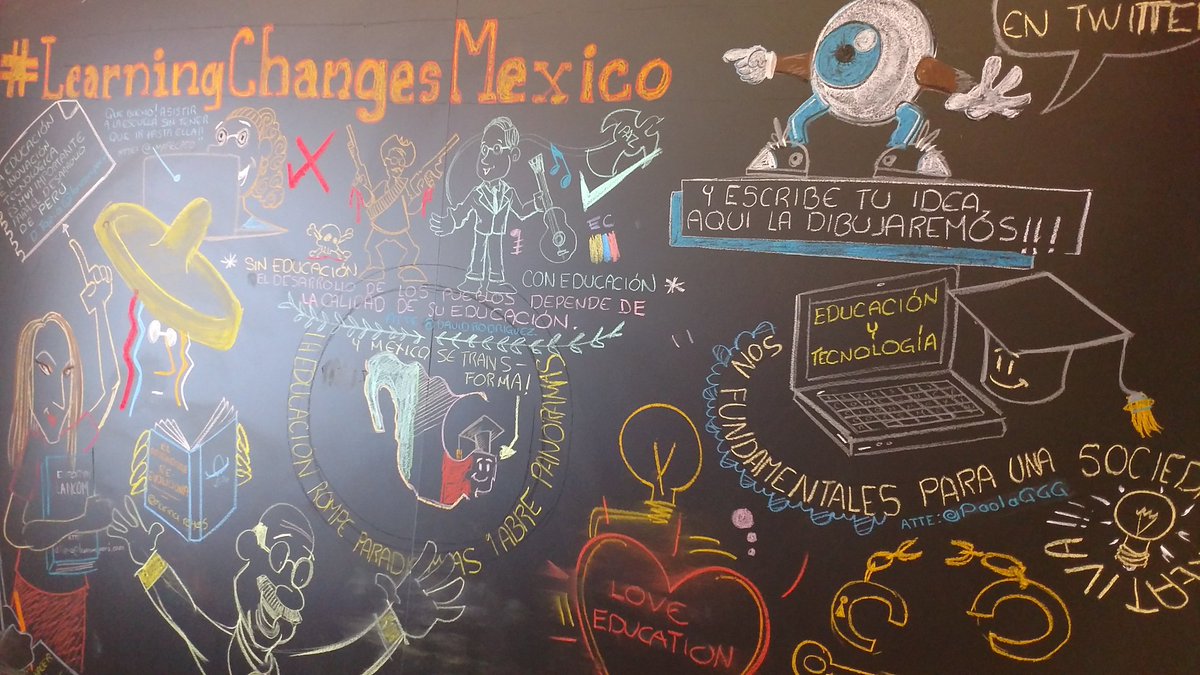 #LearningChangesMexico
EN TWITTER
QUE BUENO! ASISTIR
A LA ESCUELA SIN TENER
QUE IR HASTA ELLA!!
EDUCACIÓN
INNOVACIÓN
TECNOLÓGICA
ES MUY IMPORTANTE
PARA EL DESARROLLO
DE PERÚ
Y ESCRIBE TU IDEA
AQUI LA DIBUJAREMOS!!!
EC
* SIN EDUCACIÓN
CON EDUCACIÓN *
EL DESARROLLO DE LOS PUEBLOS DEPENDE DE
LA CALIDAD DE SU EDUCACIÓN.
ATTE: @DAVIDRODRIGUEZ
Y MÉXICO SE TRANS-
FORMA!
LA EDUCACION ROMPE PARADIGMAS Y ABRE PANORAMAS
EDUCACIÓN
Y
TECNOLOGÍA
SON FUNDAMENTALES PARA UNA SOCIED
ATTE: @PaolaGGG
LOVE
EDUCATION